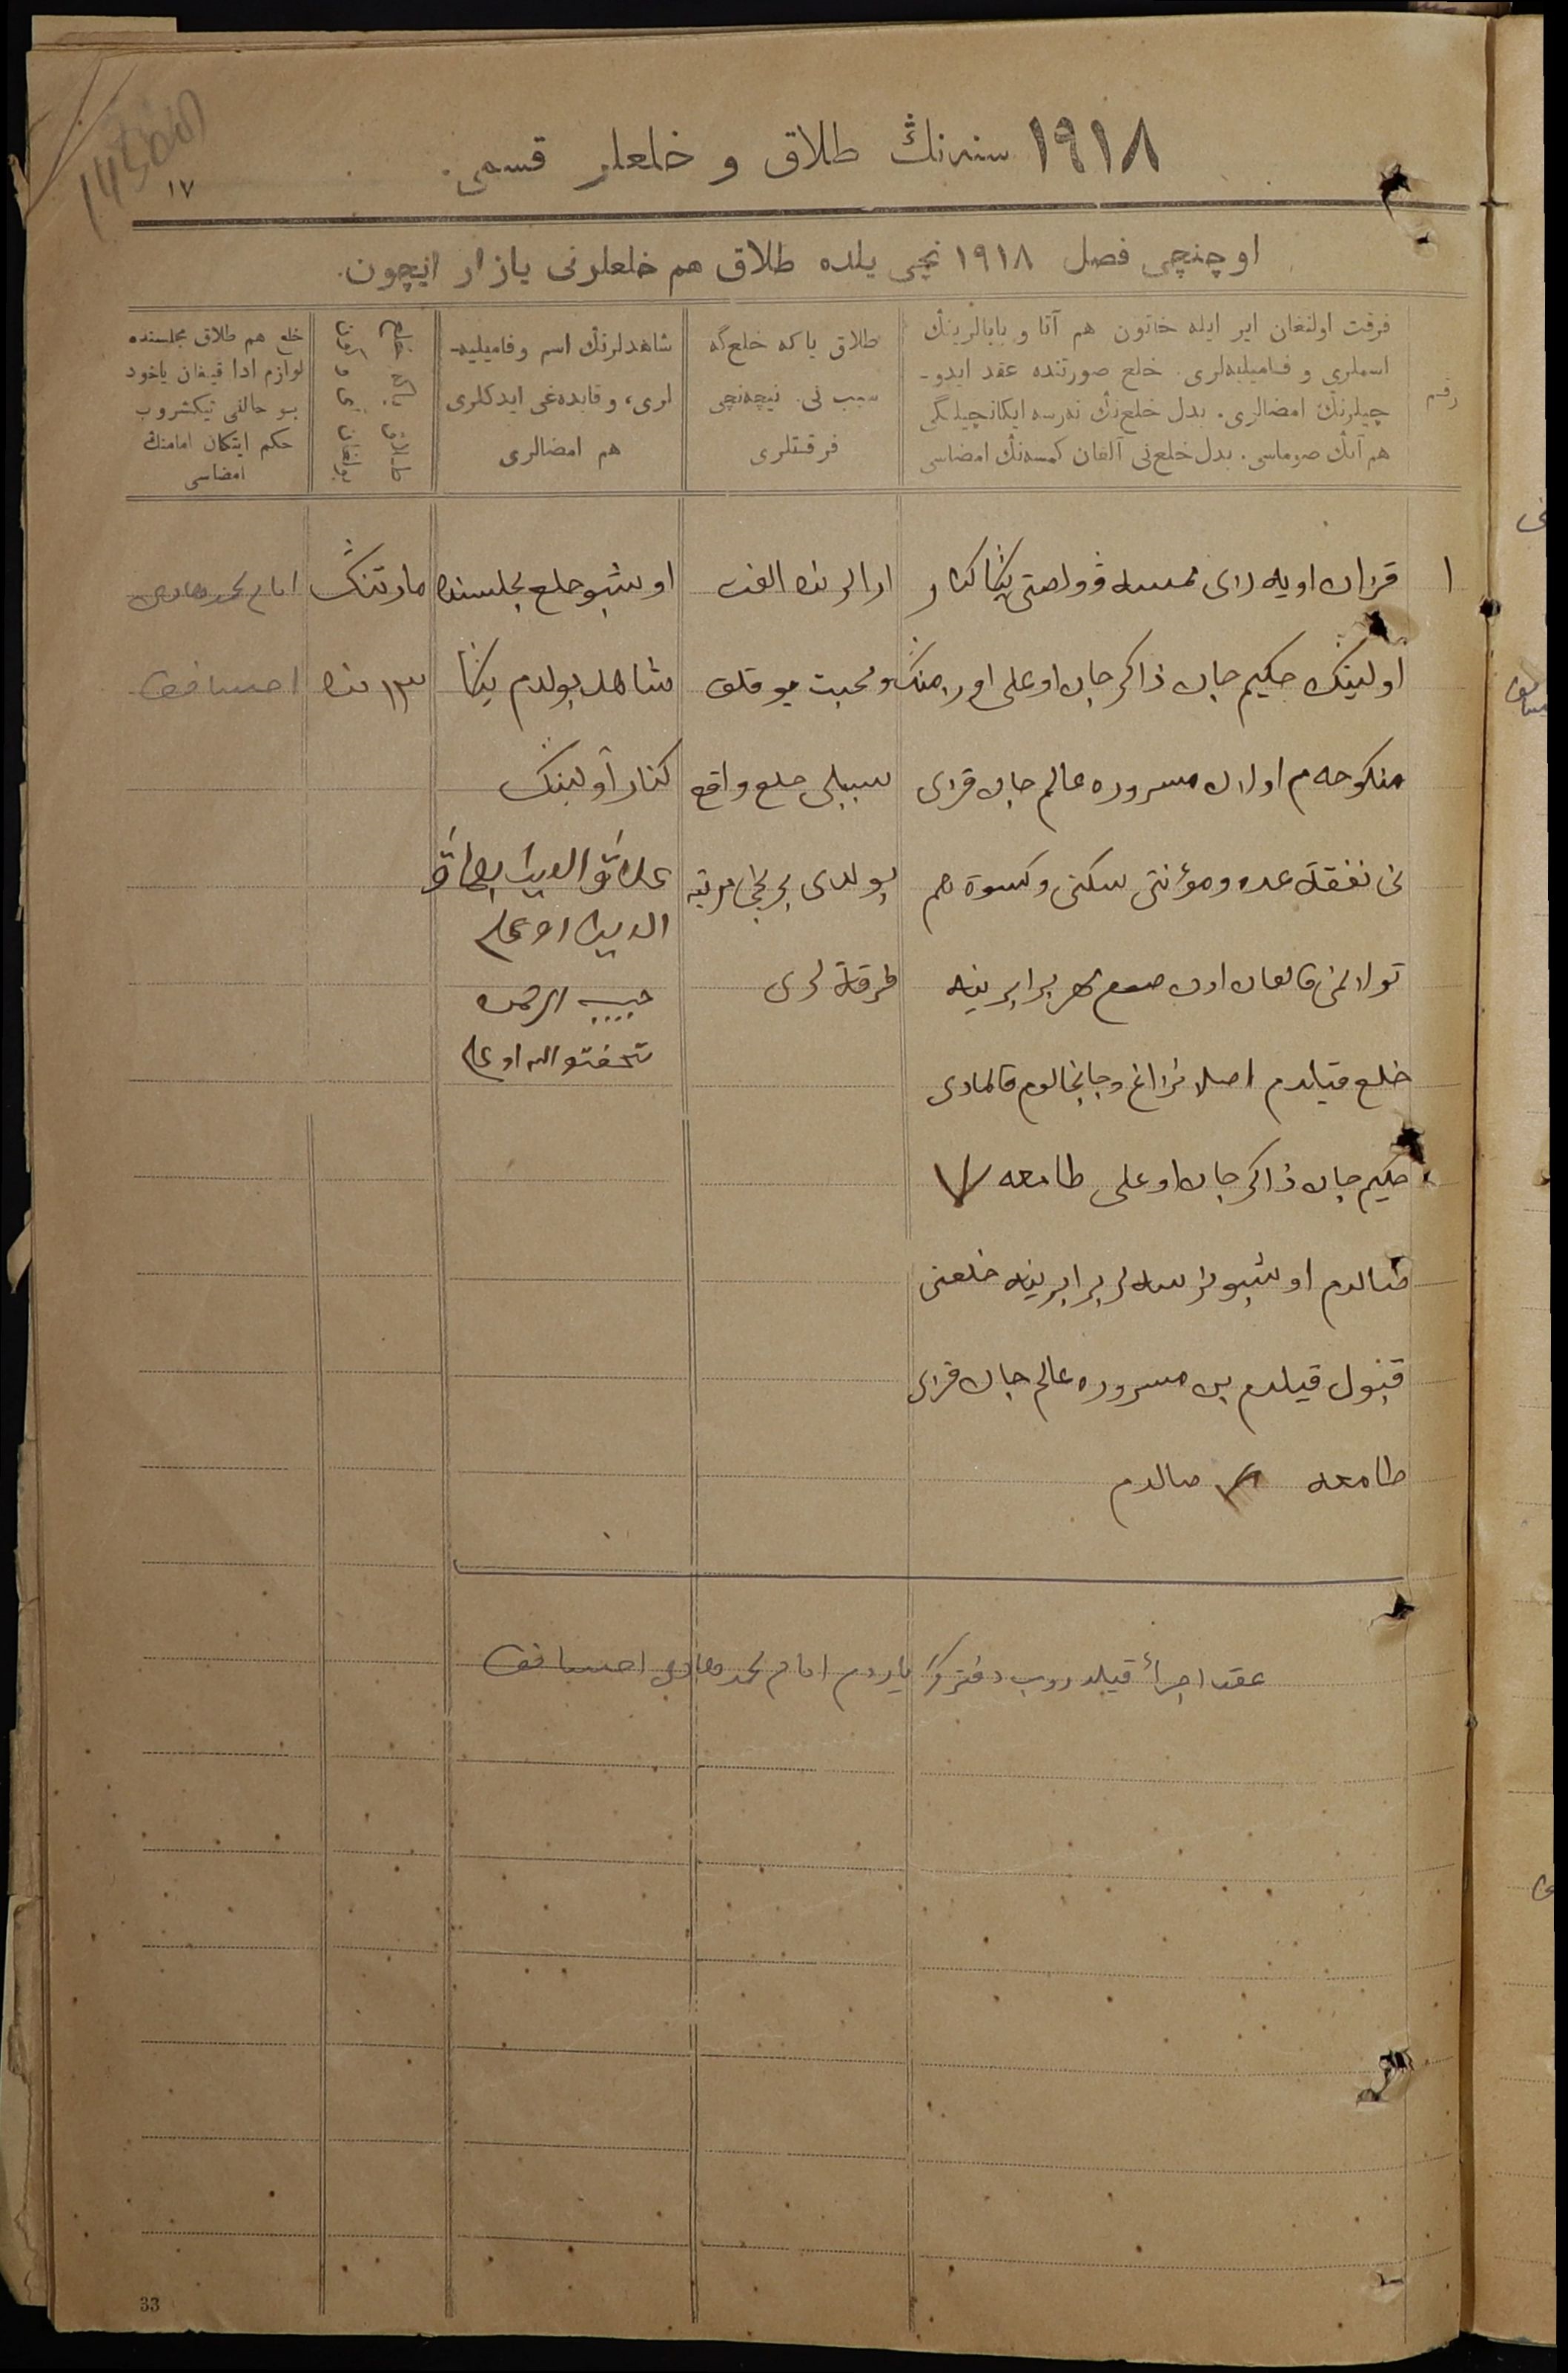 ١٩١٨ سنه‌نڭ طلاق و خلعلر قسمی.
١٧
اوچنچی فصل ١٩١٨ نچی یلده طلاق هم خلعلرنی یازار ایچون.
رقم
فرقت اولنغان ایر ایله خاتون هم آتا و بابالرینڭ
اسملری و فامیلیه‌لری. خلع صورتنده عقد ایدو-
چیلرنڭ امضالری. بدل خلع‌نڭ نه‌رسه ایکانچیلگی
هم آنڭ صوماسی. بدل خلع‌نی آلغان کمسه‌نڭ امضاسی
طلاق یا که خلع‌گه
سبب نی. نیچه‌نچی
فرقتلری
شاهدلرنڭ اسم و فامیلیه-
لری، و قایده‌غی ایدکلری
هم امضالری
خلع هم طلاق مجلسنده
لوازم ادا قیلغان یاخود
بو حالنی تیکشروب
حکم ایتکان امامنڭ
امضاسی
١
قزان اویه‌زی
اولینڭ حکیم جان ذاکر جان اوغلی اوزمنڭ
منکوحه‌م اولان مسروره عالم جان قزی
نی نفقهٔ عده و مؤنتی سکنی و کسوة هم
برابرینه
خلع قیلدم اصلا نزاغ و جانجالوم قالمادی
حکیم جان ذاکر جان اوغلی طامغه
صالدم اوشبو نرسه‌لر برابرینه خلعنی
قبول قیلدم بن مسروره عالم جان قزی
طامغه صالدم
ارالرنده الفت
و محبت یوقلق
سببلی خلع واقع
بولدی برنچی مرتبه
فرقتلری
اوشبو خلع مجلسنده
شاهد بولدم یڭا
کنار آولینڭ
الدین اوغلی
حبیب الرحمن
تحفة الله اوغلی
مارتنڭ
١٣ نده
امام محمد هادی
احسانف
عقد اجرأ قیلدروب دفترگه یازدم امام محمد هادی احسانف
33